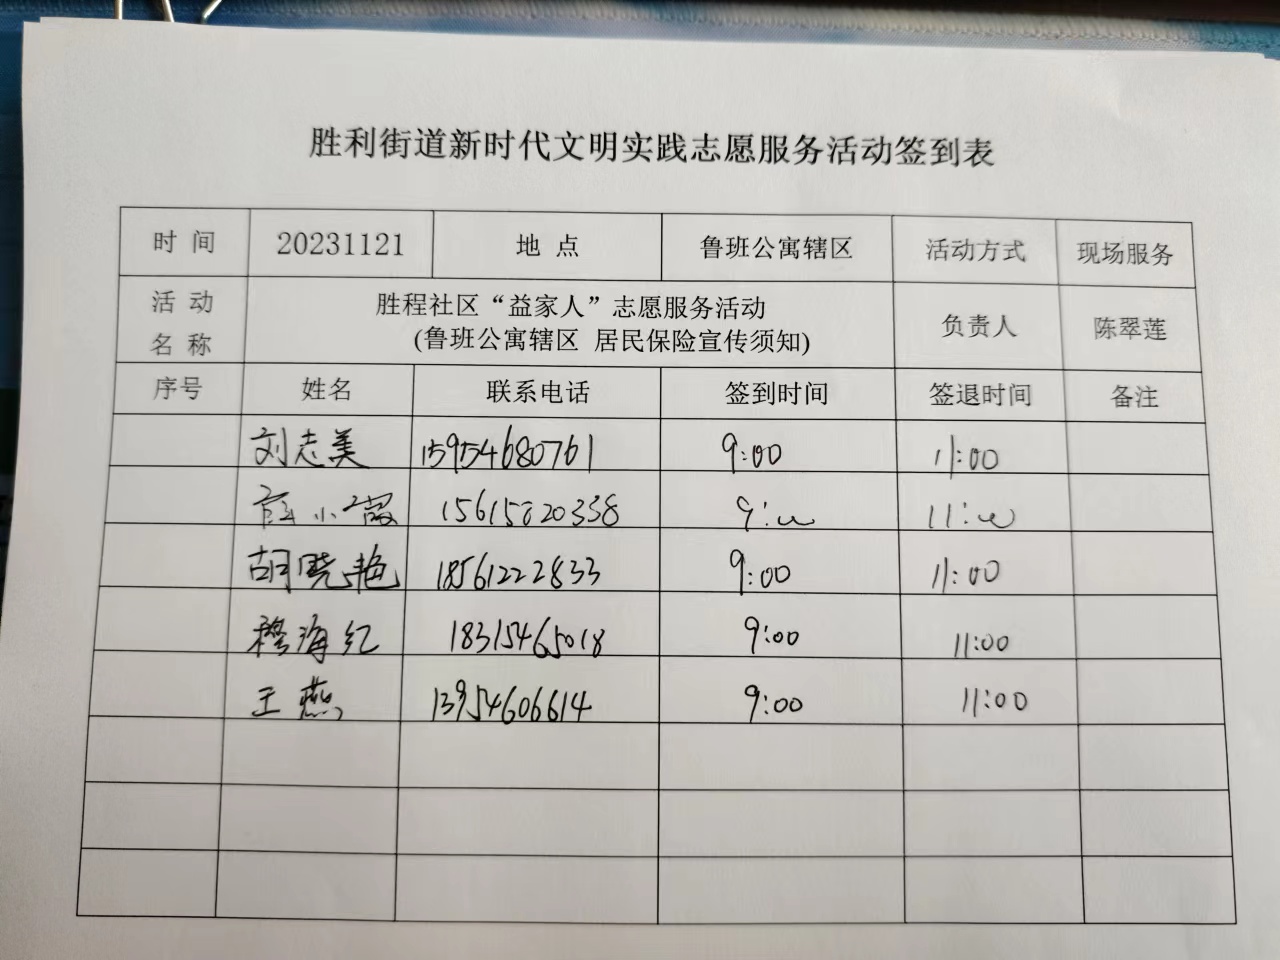 胜利街道新时代文明实践志愿服务活动签到表
时 间 20231121 地 点 鲁班公寓辖区 活动方式 现场服务
活 动 名 称 胜程社区“益家人”志愿服务活动 负责人 陈翠莲
(鲁班公寓辖区 居民保险宣传须知)
序号 姓名 联系电话 签到时间 签退时间 备注
刘志美 15954680761 9:00 11:00
小 15615820338 9:00 11:00
胡晓艳 18561222833 9:00 11:00
穆海红 18315465018 9:00 11:00
王燕 13954606614 9:00 11:00